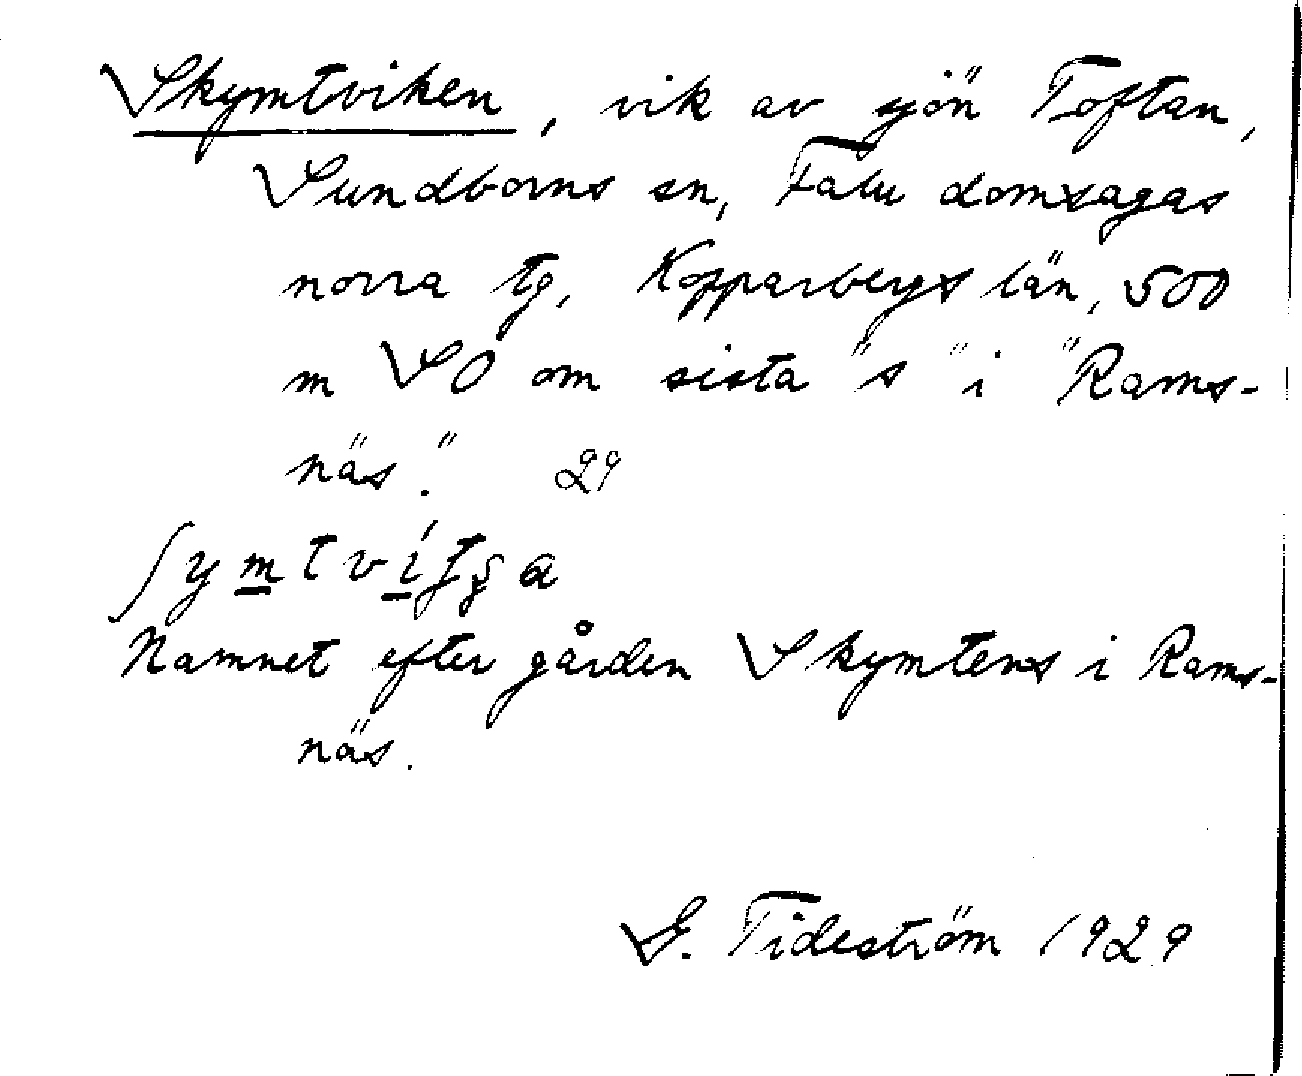 Skymtviken, vik av sjön Toftan,
Sundborns sn, Falu domsagas
norra tg, Kopparbergs län, 500
m SO om sista "s" i "Rams-
näs". 29
Namnet efter gården Skymtens i Rams-
näs.
G. Tideström 1929